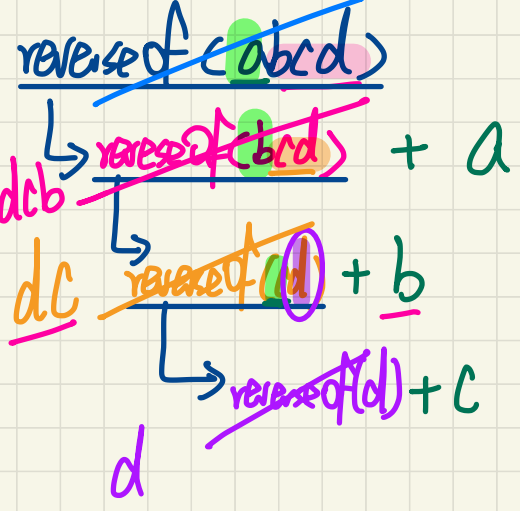 reverse of (abcd)
reverse of (bcd) + a
dcb
reverse of (cd) + b
dc
reverse of (d) + c
d